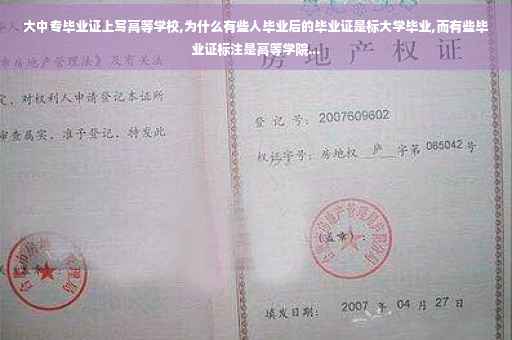 大中专毕业证上写高等学校,为什么有些人毕业后的毕业证是标大学毕业,而有些毕
业证标注是高等学院...
房地产权证
市房地产管理法》及有关法
定，对权利人申请登记本证所
审查属实，准予登记，特发此
登 记 号： 2007609602
权证字号：房地权 庐 字第 065042 号
（盖章）：
填发日期： 2007 年 04 月 27 日